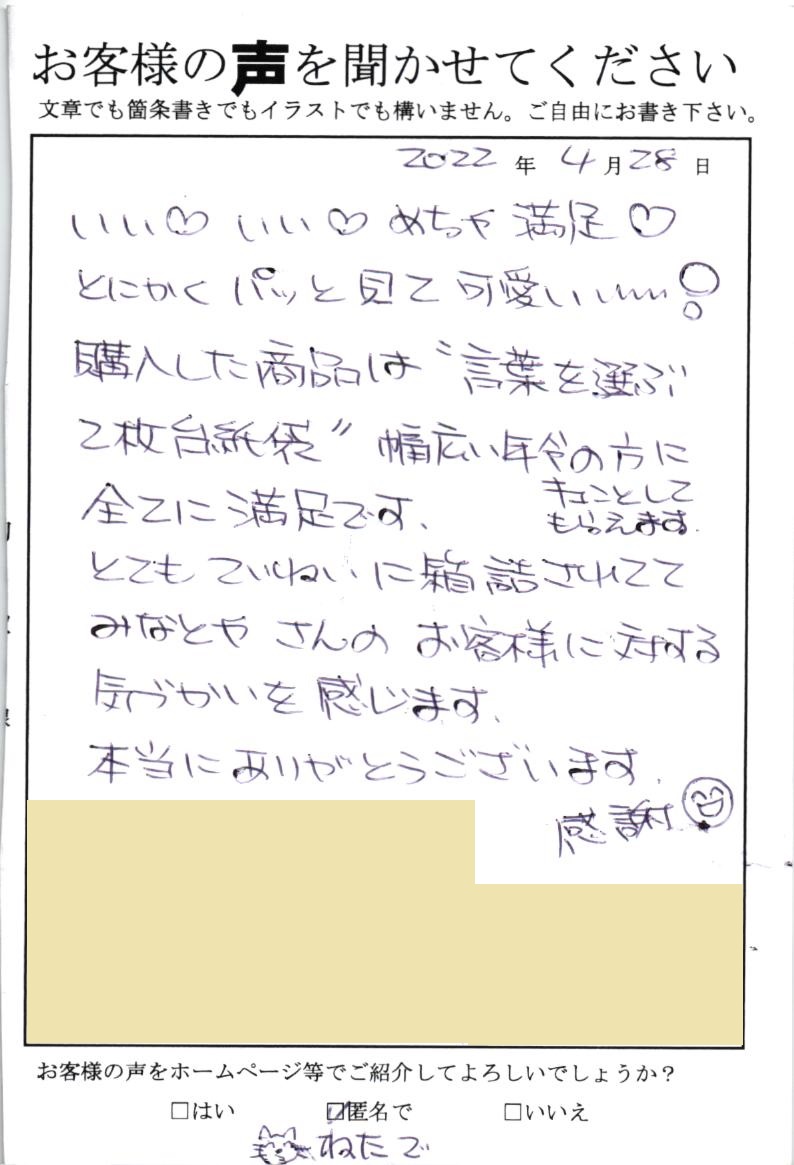 お客様の声を聞かせてください
文章でも箇条書きでもイラストでも構いません。ご自由にお書き下さい。
2022年 4月28日
いい♡ いい♡ めちゃ 満足♡
とにかく パッと見て 可愛いいい
購入した商品は "言葉を選ぶ
2枚台紙袋" 幅広い年令の方に
キュンとして
もらえます。
全てに満足です、
とても ていねいに箱詰されてて
みなとや さんの お客様に対する
気づかいを感じます、
本当にありがとうございます、
感謝
お客様の声をホームページ等でご紹介してよろしいでしょうか?
□はい ☑匿名で □いいえ
ねたで